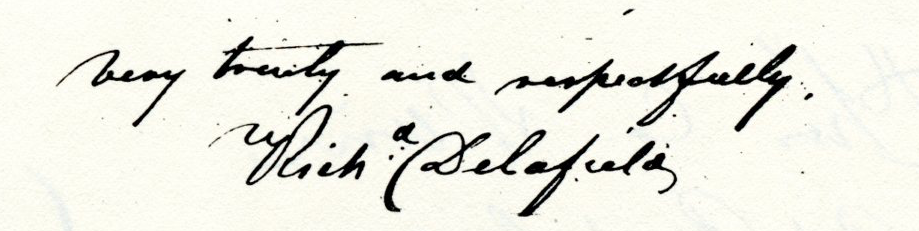 very truly and respectfully,
Richd Delafield